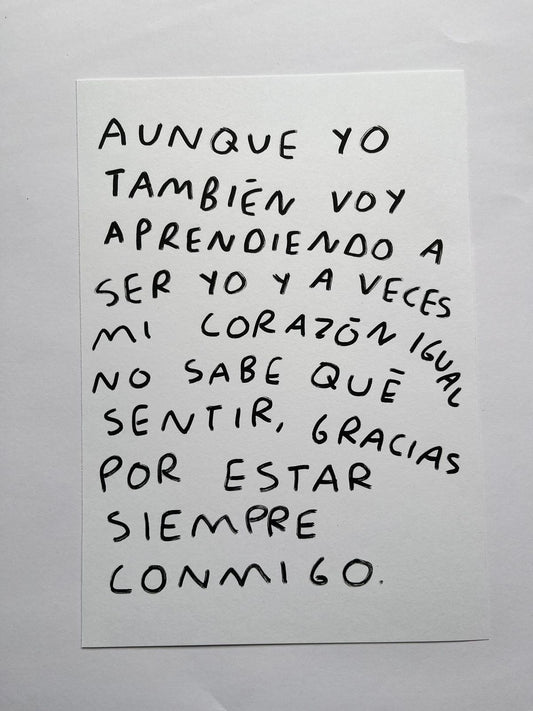 AUNQUE YO
TAMBIĒN VOY
APRENDIENDO A
SER YO Y A VECES
MI CORAZŌN IGUAL
NO SABE QUĒ
SENTIR, GRACIAS
POR ESTAR
SIEMPRE
CONMIGO.